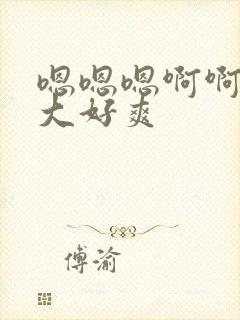 嗯嗯嗯啊啊
大好爽
傅渝